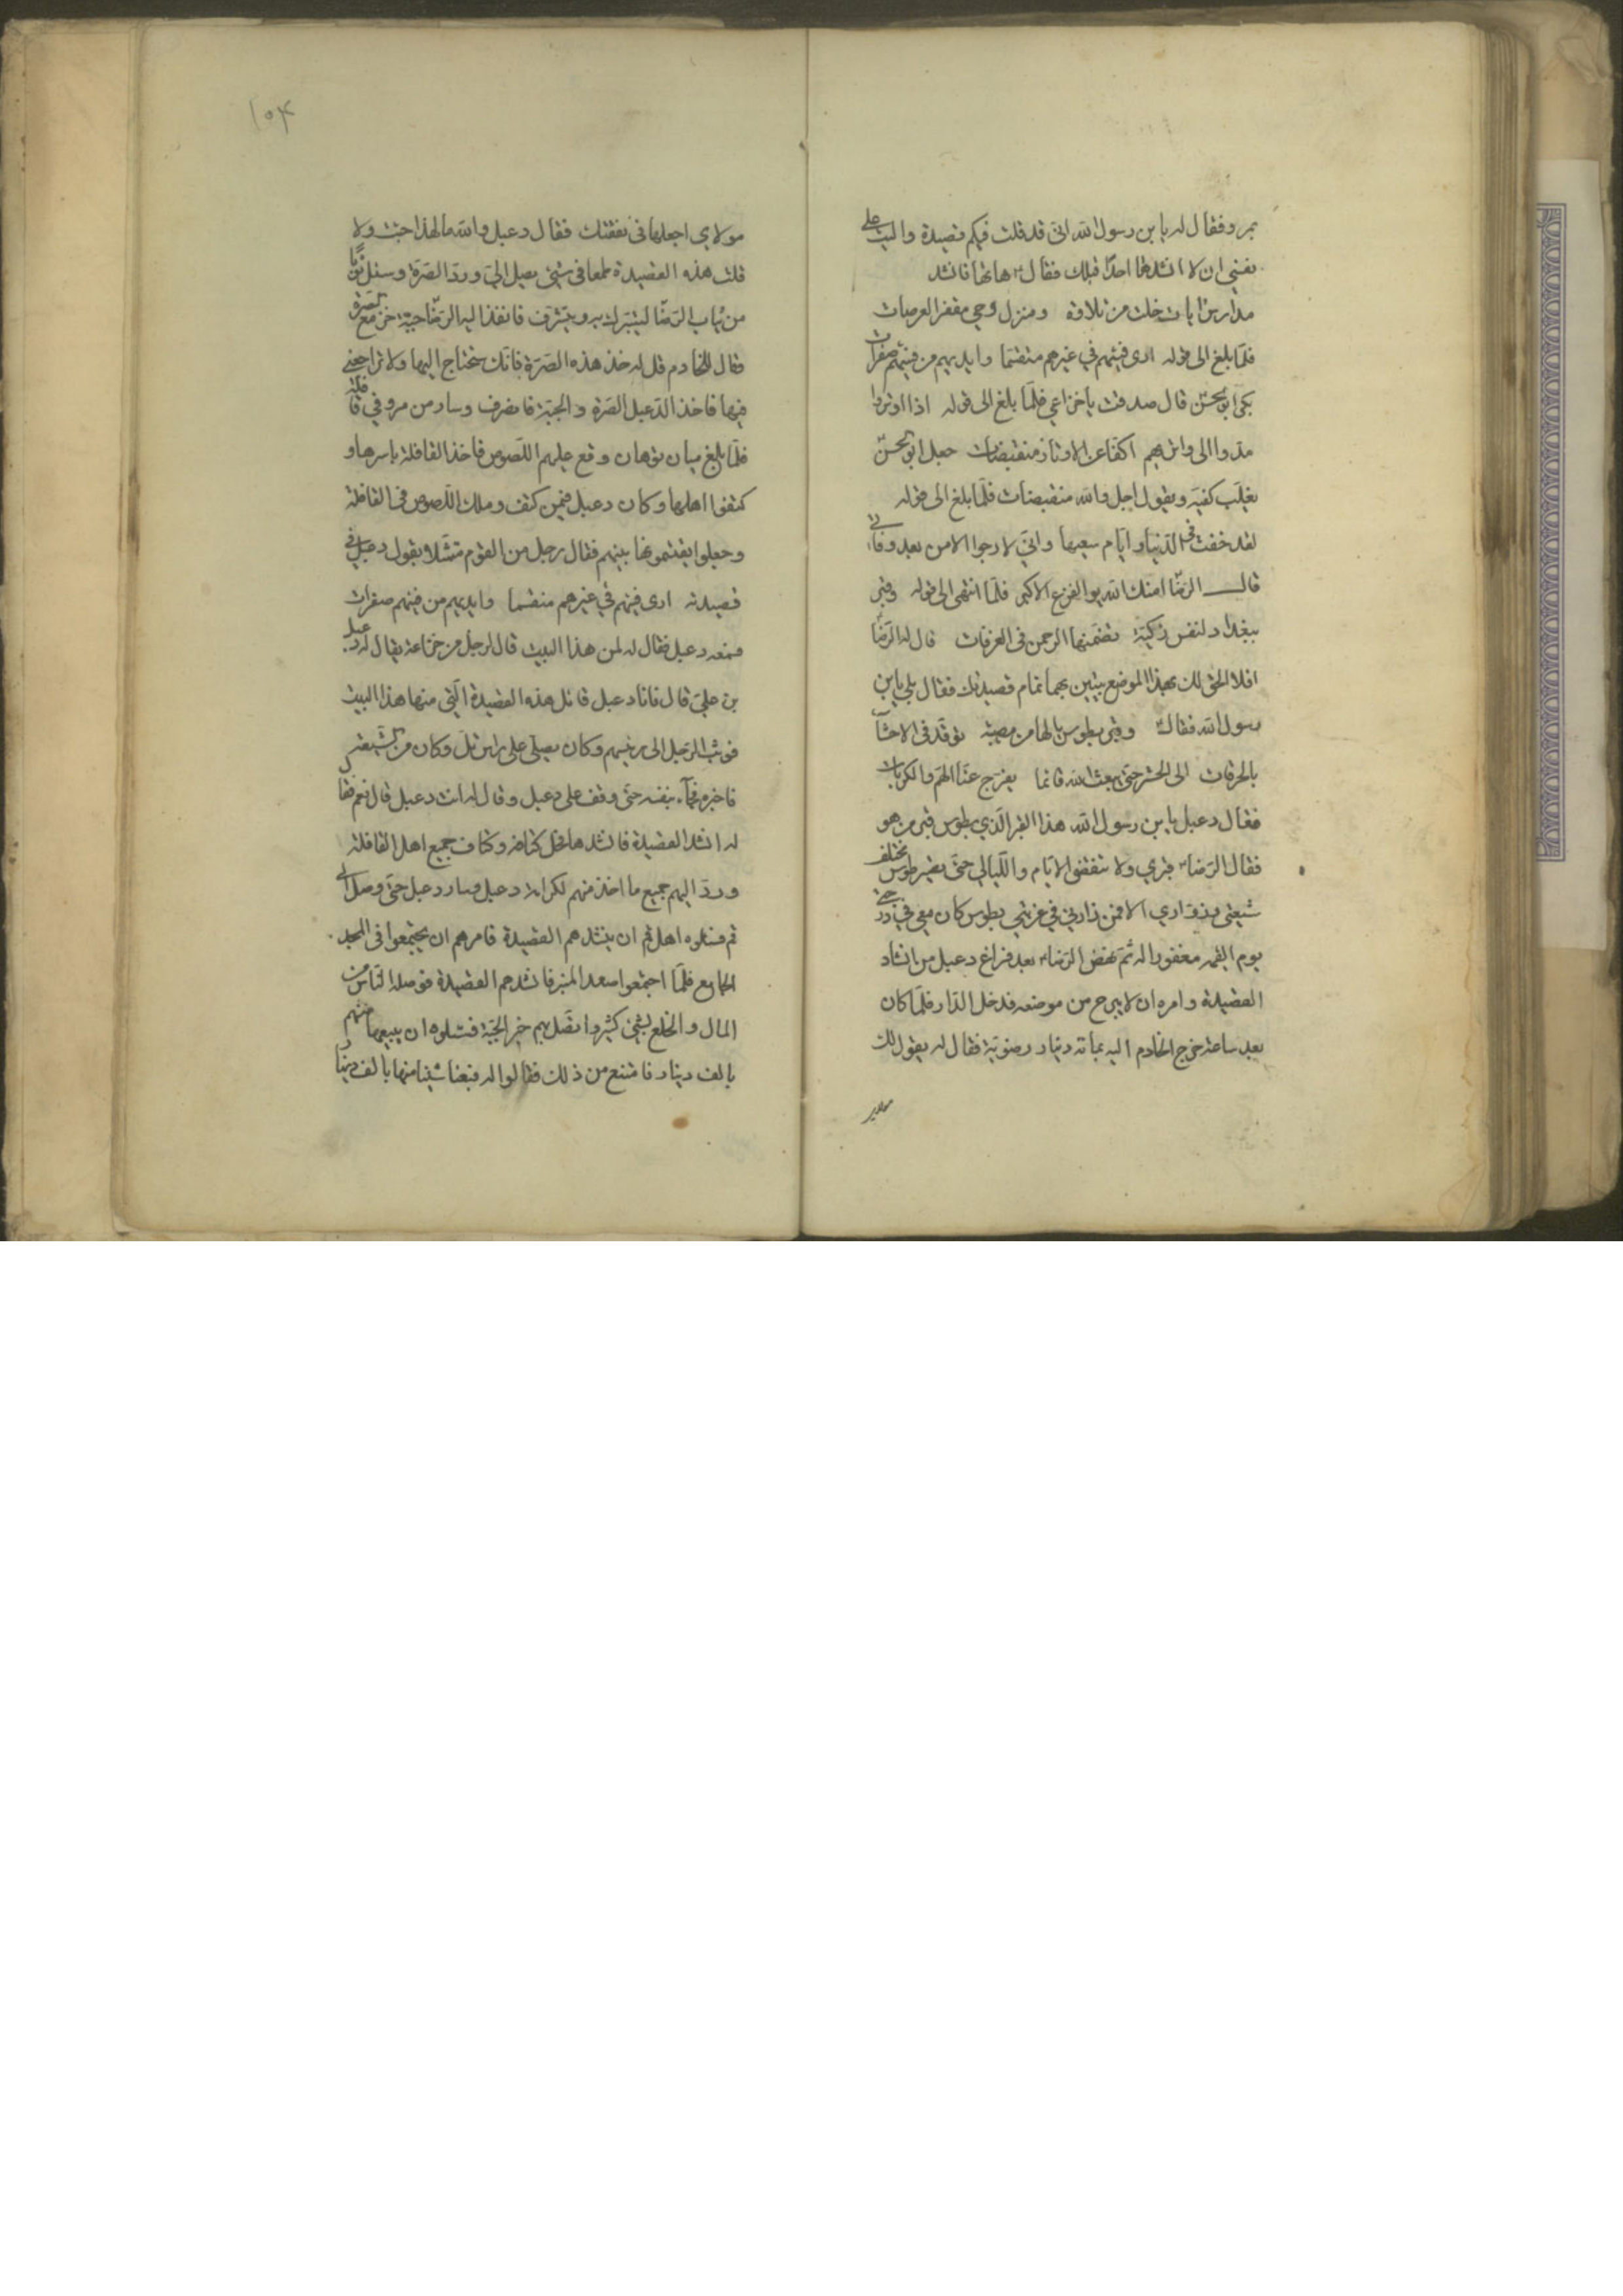 بمرو فقال له يا بن رسول الله انى قد قلت فيكم قصيدة واليت على
نفسي ان لا انشدها احدًا قبلك فقال ع هاتها فانشد
مدارس ايات خلت من تلاوة ومنزل وحي مقفر العرصات
فلمّا بلغ الى قوله ارى فيئهم في غيرهم متقسّما وايديهم من فيئهم صفرات
بكى ابو الحسن قال صدقت يا خزاعي فلمّا بلغ الى قوله اذا اوتروا
مدوا الى واتريهم اكفا عن الاوتار منقبضات جعل ابو الحسن
يقلّب كفيه ويقول اجل والله منقبضات فلمّا بلغ الى قوله
لقد خفت في الدّنيا وايّام سعيها وانّي لارجوا الامن بعد وفاتي
قال الرّضا امنك الله يوم الفزع الاكبر فلمّا انتهى الى قوله وقبر
ببغداد لنفس زكيّة تضمّنها الرحمن فى الغرفات قال له الرّضا
افلا الحق لك بهذا الموضع بيتين بهما تمام قصيدتك فقال بلى يا بن
رسول الله فقال ع وقبر بطوس يا لها من مصيبة توقّد فى الاحشآء
بالحرقات الى الحشر حتّى يبعث الله قائما يفرّج عنّا الهمّ والكربات
فقال دعبل يا بن رسول الله هذا القبر الّذي بطوس قبر من هو
فقال الرّضا ع قبري ولا تنقضى الايّام واللّيالي حتّى تصير طوس مختلف
شيعتى وزوّاري الا فمن زارني في غربتي بطوس كان معي في درجتي
يوم القيمه مغفورا له ثمّ نهض الرّضا ع بعد فراغ دعبل من انشاد
القصيدة وامره ان لا يبرح من موضعه فدخل الدّار فلمّا كان
بعد ساعة خرج الخادم اليه بمائة دينار رضويّة فقال له يقول لك
مولاي
١٥٤
مولاي اجعلها فى نفقتك فقال دعبل والله ما لهذا جئت ولا
قلت هذه القصيدة طمعا في شئ يصل الىّ وردّ الصّرة وسئل ثوبًا
من ثياب الرّضا ليتبّرك به ويتشرّف فانفذ اليه الرّضا جبّة خز مع الصّرة
فقال للخادم قل له خذ هذه الصّرّة فانّك ستحتاج اليها ولا تراجعني
فيها فاخذ الدّعبل الصّرة والجبّة فانصرف وسار من مرو في قافلة
فلمّا بلغ ميان قوهان وقع عليهم اللّصوص فاخذ القافلة باسرها و
كتفوا اهلها وكان دعبل فيمن كتف وملك اللّصوص فى القافلة
وجعلوا يقتسمونها بينهم فقال رجل من القوم متمثّلا بقول دعبل في
قصيدته ارى فيئهم في غيرهم متقسّما وايديهم من فيئهم صفرات
فسمعه دعبل فقال له لمن هذا البيت قال لرجل من خزاعة يقال له دعبل
بن عليّ قال فانا دعبل قائل هذه القصيدة الّتي منها هذا البيت
فوثب الرّجل الى رئيسهم وكان يصلّي على راس تلّ وكان من الشّيعة
فاخبره فجآء بنفسه حتّى وقف على دعبل وقال له انت دعبل قال نعم فقال
له انشد القصيدة فانشدها فحلّ كتافه وكتاف جميع اهل القافلة
وردّ اليهم جميع ما اخذ منهم لكرامة دعبل وسار دعبل حتّى وصل الى
قم فسئلوه اهل قم ان ينشدهم القصيدة فامرهم ان يجتمعوا فى المسجد
الجامع فلمّا اجتمعوا صعد المنبر فانشدهم القصيدة فوصله النّاس من
المال والخلع بشئ كثير واتّصل بهم خبر الجبّة فسئلوه ان يبيعها منهم
بالف دينار فامتنع من ذلك فقالوا له فبعنا شيئا منها بالف دينار